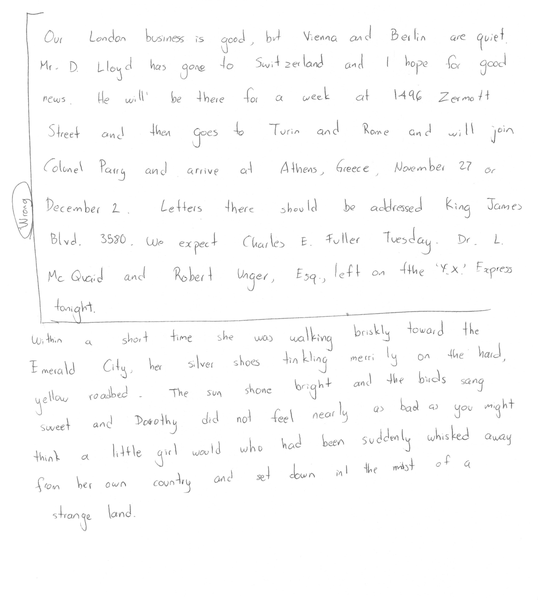 Our London business is good, but Vienna and Berlin are quiet.
Mr. D. Lloyd has gone to Switzerland and I hope for good
news. He will be there for a week at 1496 Zermott
Street and then goes to Turin and Rome and will join
Colonel Parry and arrive at Athens, Greece, November 27 or
December 2. Letters there should be addressed King James
Blvd. 3580. We expect Charles E. Fuller Tuesday. Dr. L.
McQuaid and Robert Unger, Esq., left on fthe 'Y.X.' Express
tonight.
Wrong
Within a short time she was walking briskly toward the
Emerald City, her silver shoes tinkling merrily on the hard,
yellow roadbed. The sun shone bright and the birds sang
sweet and Dorothy did not feel nearly as bad as you might
think a little girl would who had been suddenly whisked away
from her own country and set down in the midst of a
strange land.